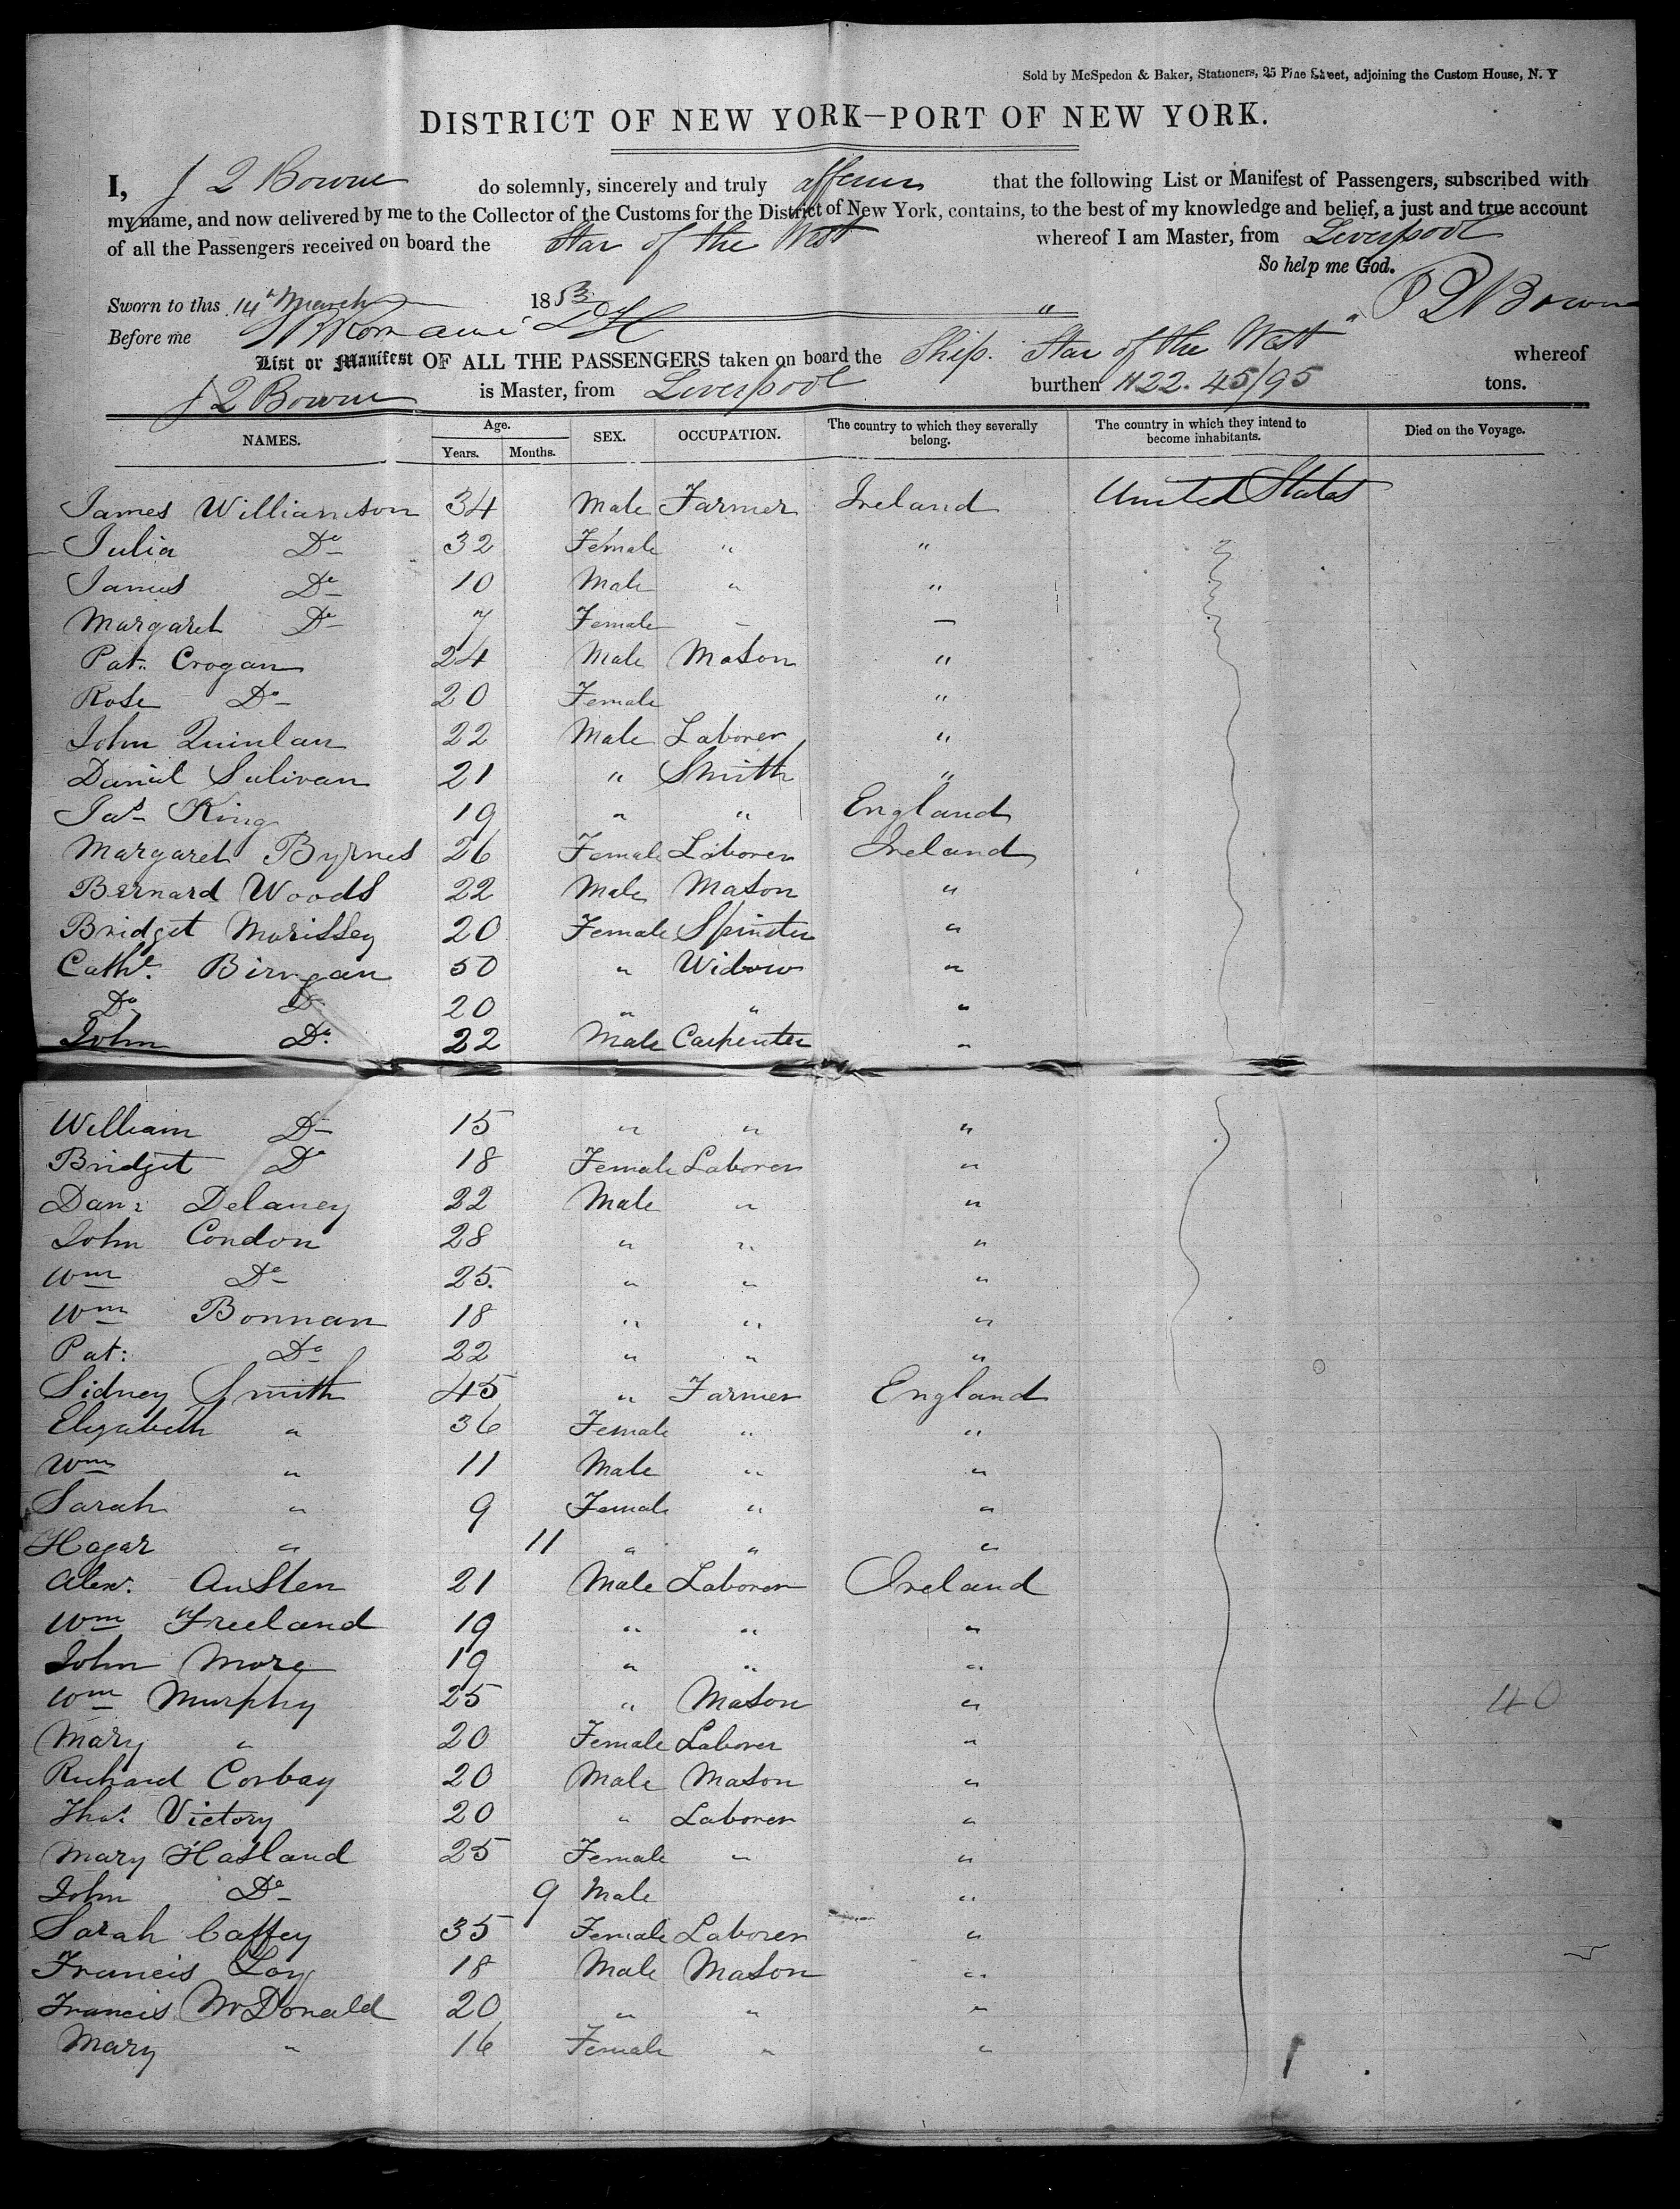 Sold by McSpedon & Baker, Stationers, 25 Pine Street, adjoining the Custom House, N. Y
DISTRICT OF NEW YORK—PORT OF NEW YORK.
I, J Q Bowne do solemnly, sincerely and truly affirm that the following List or Manifest of Passengers, subscribed with
my name, and now delivered by me to the Collector of the Customs for the District of New York, contains, to the best of my knowledge and belief, a just and true account
of all the Passengers received on board the Star of the West whereof I am Master, from Liverpool
So help me God.
Sworn to this 14th March 1853 J Q Bowne
Before me
List or Manifest OF ALL THE PASSENGERS taken on board the Ship. "Star of the West" whereof
J Q Bowne is Master, from Liverpool burthen 1122. 45/95 tons.
NAMES. Age. Years. Months. SEX. OCCUPATION. The country to which they severally belong. The country in which they intend to become inhabitants. Died on the Voyage.
James Williamson 34 Male Farmer Ireland United States
Julia Do 32 Female " "
James Do 10 Male " "
Margaret Do 7 Female – –
Pat: Crogan 24 Male Mason "
Rose Do 20 Female "
John Quinlan 22 Male Laborer "
Daniel Sulivan 21 " Smith "
Jas King 19 " " England
Margaret Byrnes 26 Female Laborer Ireland
Bernard Woods 22 Male Mason "
Bridget Morissey 20 Female Spinster "
Cathe. Birngan 50 " Widow "
Do Do 20 " " "
John Do. 22 Male Carpenter "
William Do 15 " " "
Bridget Do 18 Female Laborer "
Danl Delaney 22 Male " "
John Condon 28 " " "
Wm Do 25. " " "
Wm Bonnan 18 " " "
Pat: Do 22 " " "
Sidney Smith 45 " Farmer England
Elizabeth " 36 Female " "
Wm " 11 Male " "
Sarah " 9 Female " "
Hagar " 11 " " "
Alexr. Austen 21 Male Laborer Ireland
Wm Freeland 19 " " "
John More 19 " " "
Wm Murphy 25 " Mason " 40
Mary " 20 Female Laborer "
Richard Corbay 20 Male Mason "
Thos. Victory 20 " Laborer "
Mary Hasland 25 Female " "
John Do 9 Male "
Sarah Caffey 35 Female Laborer "
Francis Loy 18 Male Mason "
Francis McDonald 20 " " "
Mary " 16 Female " "